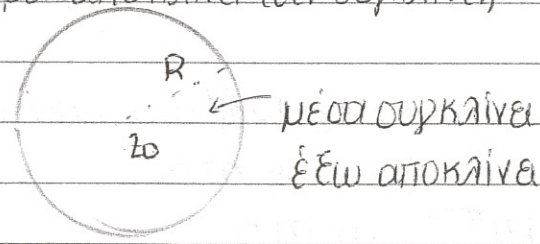 R
z₀
μέσα συγκλίνει
έξω αποκλίνει